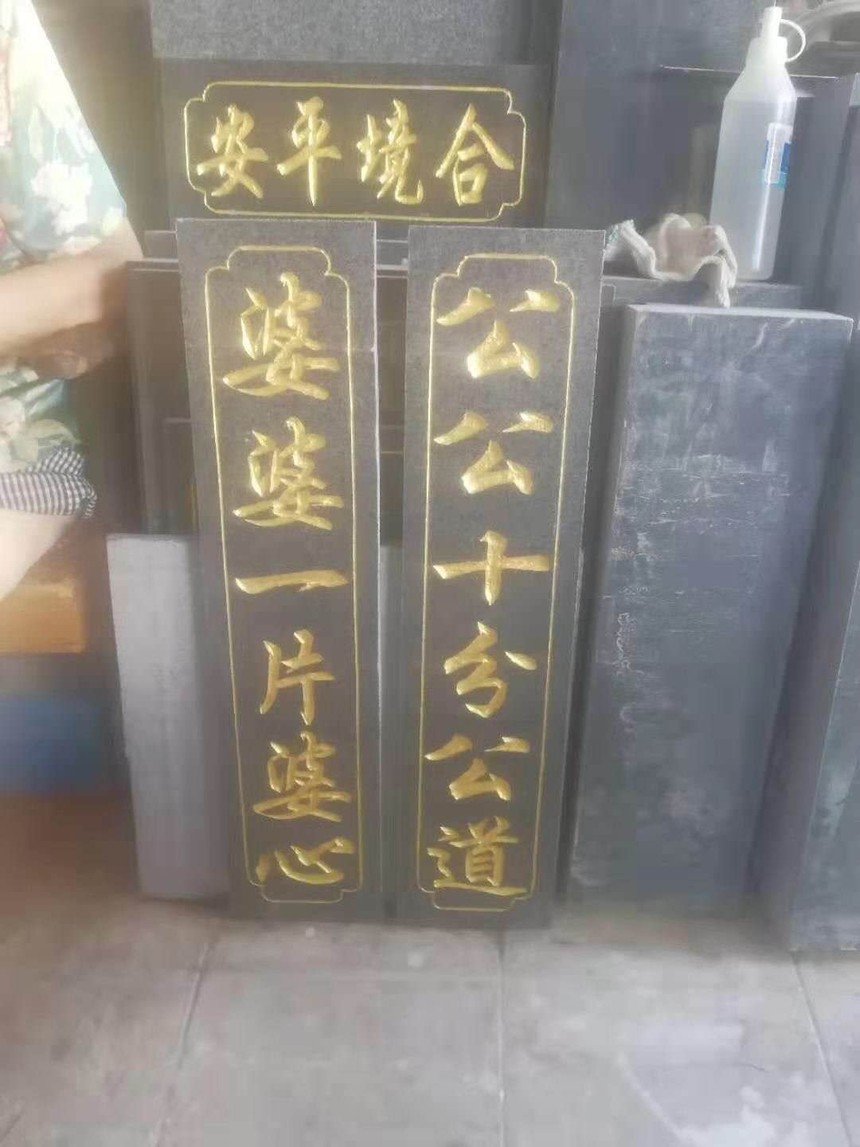 合境平安
公公十分公道
婆婆一片婆心